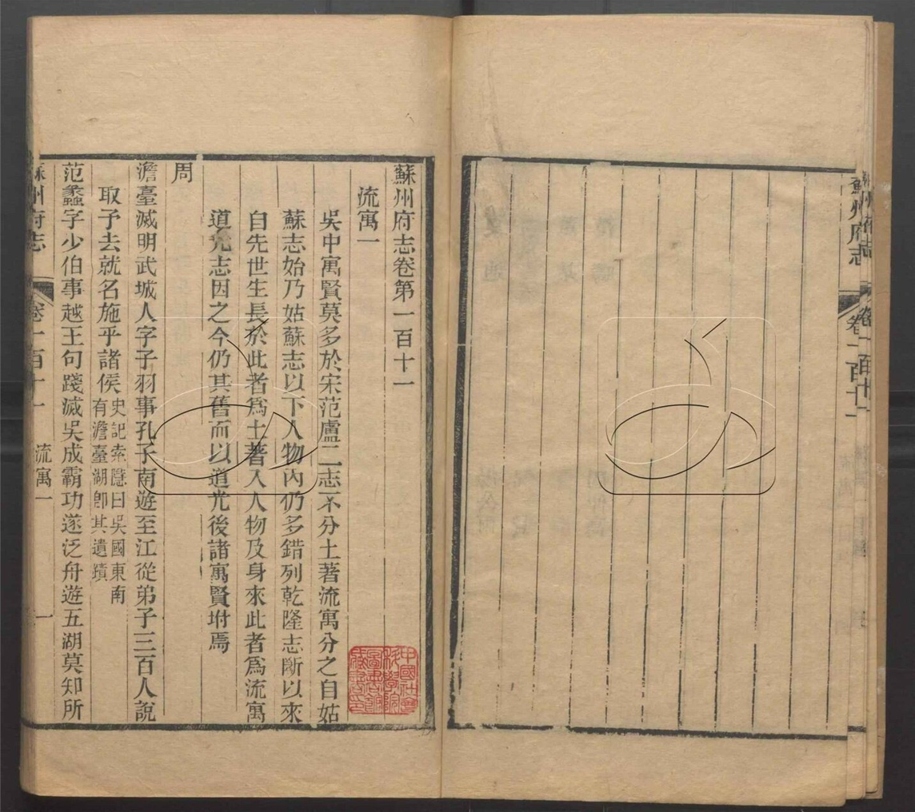 蘇州府志
卷一百十一
蘇州府志卷第一百十一
流寓一
吳中寓賢莫多於宋范盧二志不分土著流寓分之自姑
蘇志始乃姑蘇志以下人物內仍多錯列乾隆志斷以來
自先世生長於此者爲土著入人物及身來此者爲流寓
道光志因之今仍其舊而以道光後諸寓賢坿焉
周
澹臺滅明武城人字子羽事孔子南遊至江從弟子三百人說
取予去就名施乎諸侯史記索隱曰吳國東南
有澹臺湖卽其遺蹟
范蠡字少伯事越王句踐滅吳成霸功遂泛舟遊五湖莫知所
蘇州府志
卷一百十一
流寓一
一